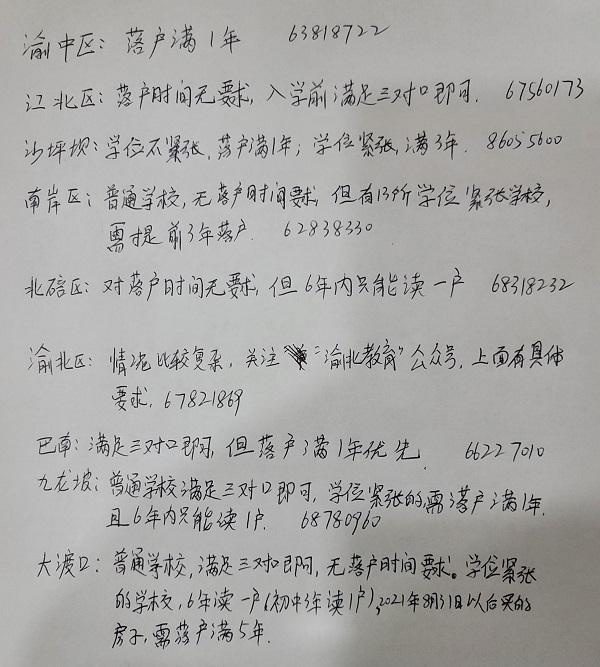 渝中区：落户满1年 63818722
江北区：落户时间无要求，入学前满足三对口即可. 67560173
沙坪坝：学位不紧张，落户满1年；学位紧张，满3年. 86055600
南岸区：普通学校，无落户时间要求，但有13所学位紧张学校，
需提前3年落户. 62838330
北碚区：对落户时间无要求，但6年内只能读一户 68318232
渝北区：情况比较复杂，关注“渝北教育”公众号，上面有具体
要求，67821869
巴南：满足三对口即可，但落户满1年优先. 66227010
九龙坡：普通学校满足三对口即可，学位紧张的需落户满1年.
且6年内只能读1户. 68780960
大渡口：普通学校，满足三对口即可，无落户时间要求。学位紧张
的学校，6年读一户(初中3年读1户)，2021年8月31日以后买的
房子，需落户满5年.